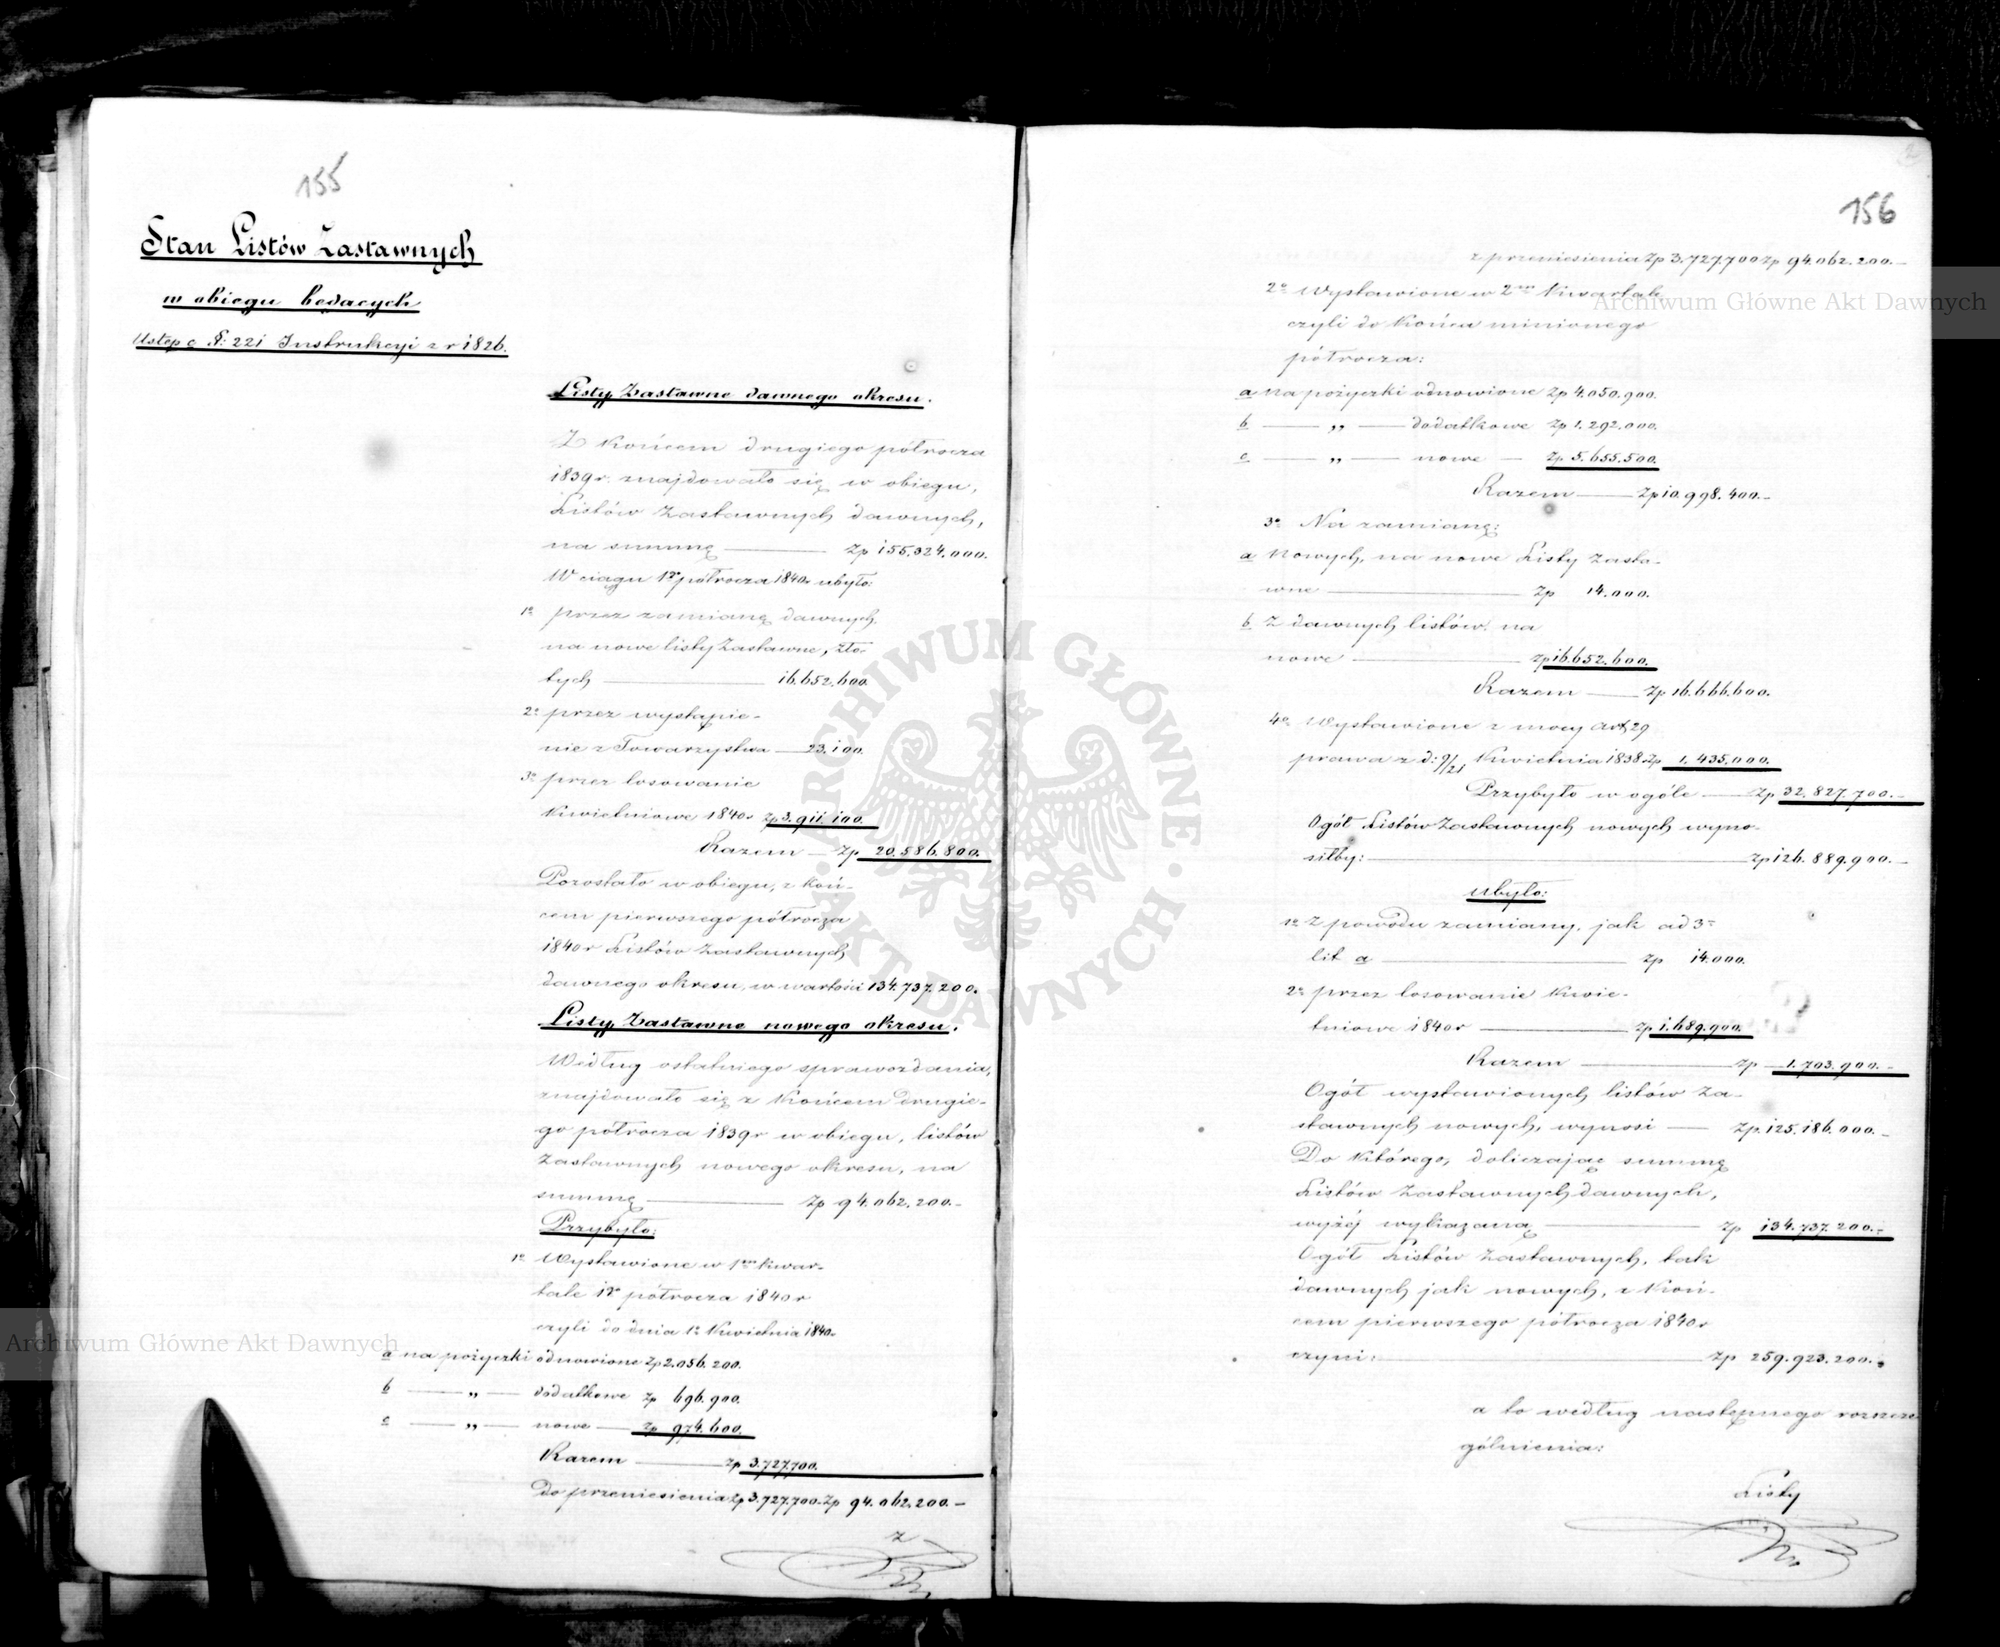 155
Stan Listów Zastawnych
w obiegu będących
Ustęp c §: 221 Instrukcyi z r 1826.
Listy Zastawne dawnego okresu.
Z końcem drugiego półrocza
1839 r. znajdowało się w obiegu,
Listów Zastawnych dawnych,
na summę — Zp 155.324.000.
W ciągu 1go półrocza 1840r ubyło:
1o przez zamianę dawnych
na nowe listy Zastawne, Zło-
tych — 16.652.600
2o przez wystąpie-
nie z Towarzystwa — 23.100.
3o przez losowanie
Kwietniowe 1840r Zp 3.911.100.
Razem — Zp 20.586.800.
Pozostało w obiegu, z koń-
cem pierwszego półrocza
1840 r Listów Zastawnych
dawnego okresu, w wartości 134.737.200.
Listy Zastawne nowego okresu.
Według ostatniego sprawozdania,
znajdowało się z końcem drugie-
go półrocza 1839r w obiegu, listów
Zastawnych nowego okresu, na
summę — Zp 94.062.200.-
Przybyło:
1o Wystawione w 1m kwar-
tale 1go półrocza 1840 r
czyli do dnia 1o Kwietnia 1840r
a na pożyczki odnowione Zp 2.056.200.
b — „ — dodatkowe Zp 696.900.
c — „ — nowe — Zp 974.600.
Razem — Zp 3.727.700.
Do przeniesienia Zp 3.727.700. Zp 94.062.200.-
z
156
z przeniesienia Zp 3.727.700 Zp 94.062.200.-
2o Wystawione w 2m Kwartale
czyli do końca minionego
półrocza:
a na pożyczki odnowione Zp 4.050.900.
b — „ — dodatkowe Zp 1.292.000.
c — „ — nowe — Zp 5.655.500.
Razem — Zp 10.998.400.-
3o Na zamianę:
a Nowych, na nowe Listy Zasta-
wne — Zp 14.000.
b Z dawnych listów na
nowe — Zp 16.652.600.
Razem — Zp 16.666.600.
4o Wystawione z mocy art 29
prawa z d: 9/21 Kwietnia 1838 Zp 1.435.000.
Przybyło w ogóle — Zp 32.827.700.-
Ogół Listów Zastawnych nowych wyno-
siłby: — Zp 126.889.900.-
Ubyło:
1o Z powodu zamiany, jak ad 3o
lit a — Zp 14.000.
2o przez losowanie Kwie-
tniowe 1840 r — Zp 1.689.900.
Razem — Zp 1.703.900.-
Ogół wystawionych listów Za-
stawnych nowych, wynosi — Zp. 125.186.000.-
Do którego, doliczając summę
Listów Zastawnych dawnych,
wyżéj wykazaną — Zp 134.737.200.-
Ogół Listów Zastawnych, tak
dawnych jak nowych, z koń-
cem pierwszego półrocza 1840 r
czyni: — Zp 259.923.200.
a to według następnego rozszcze
gólnienia:
Listy
Archiwum Główne Akt Dawnych
Archiwum Główne Akt Dawnych
ARCHIWUM GŁÓWNE
AKT DAWNYCH